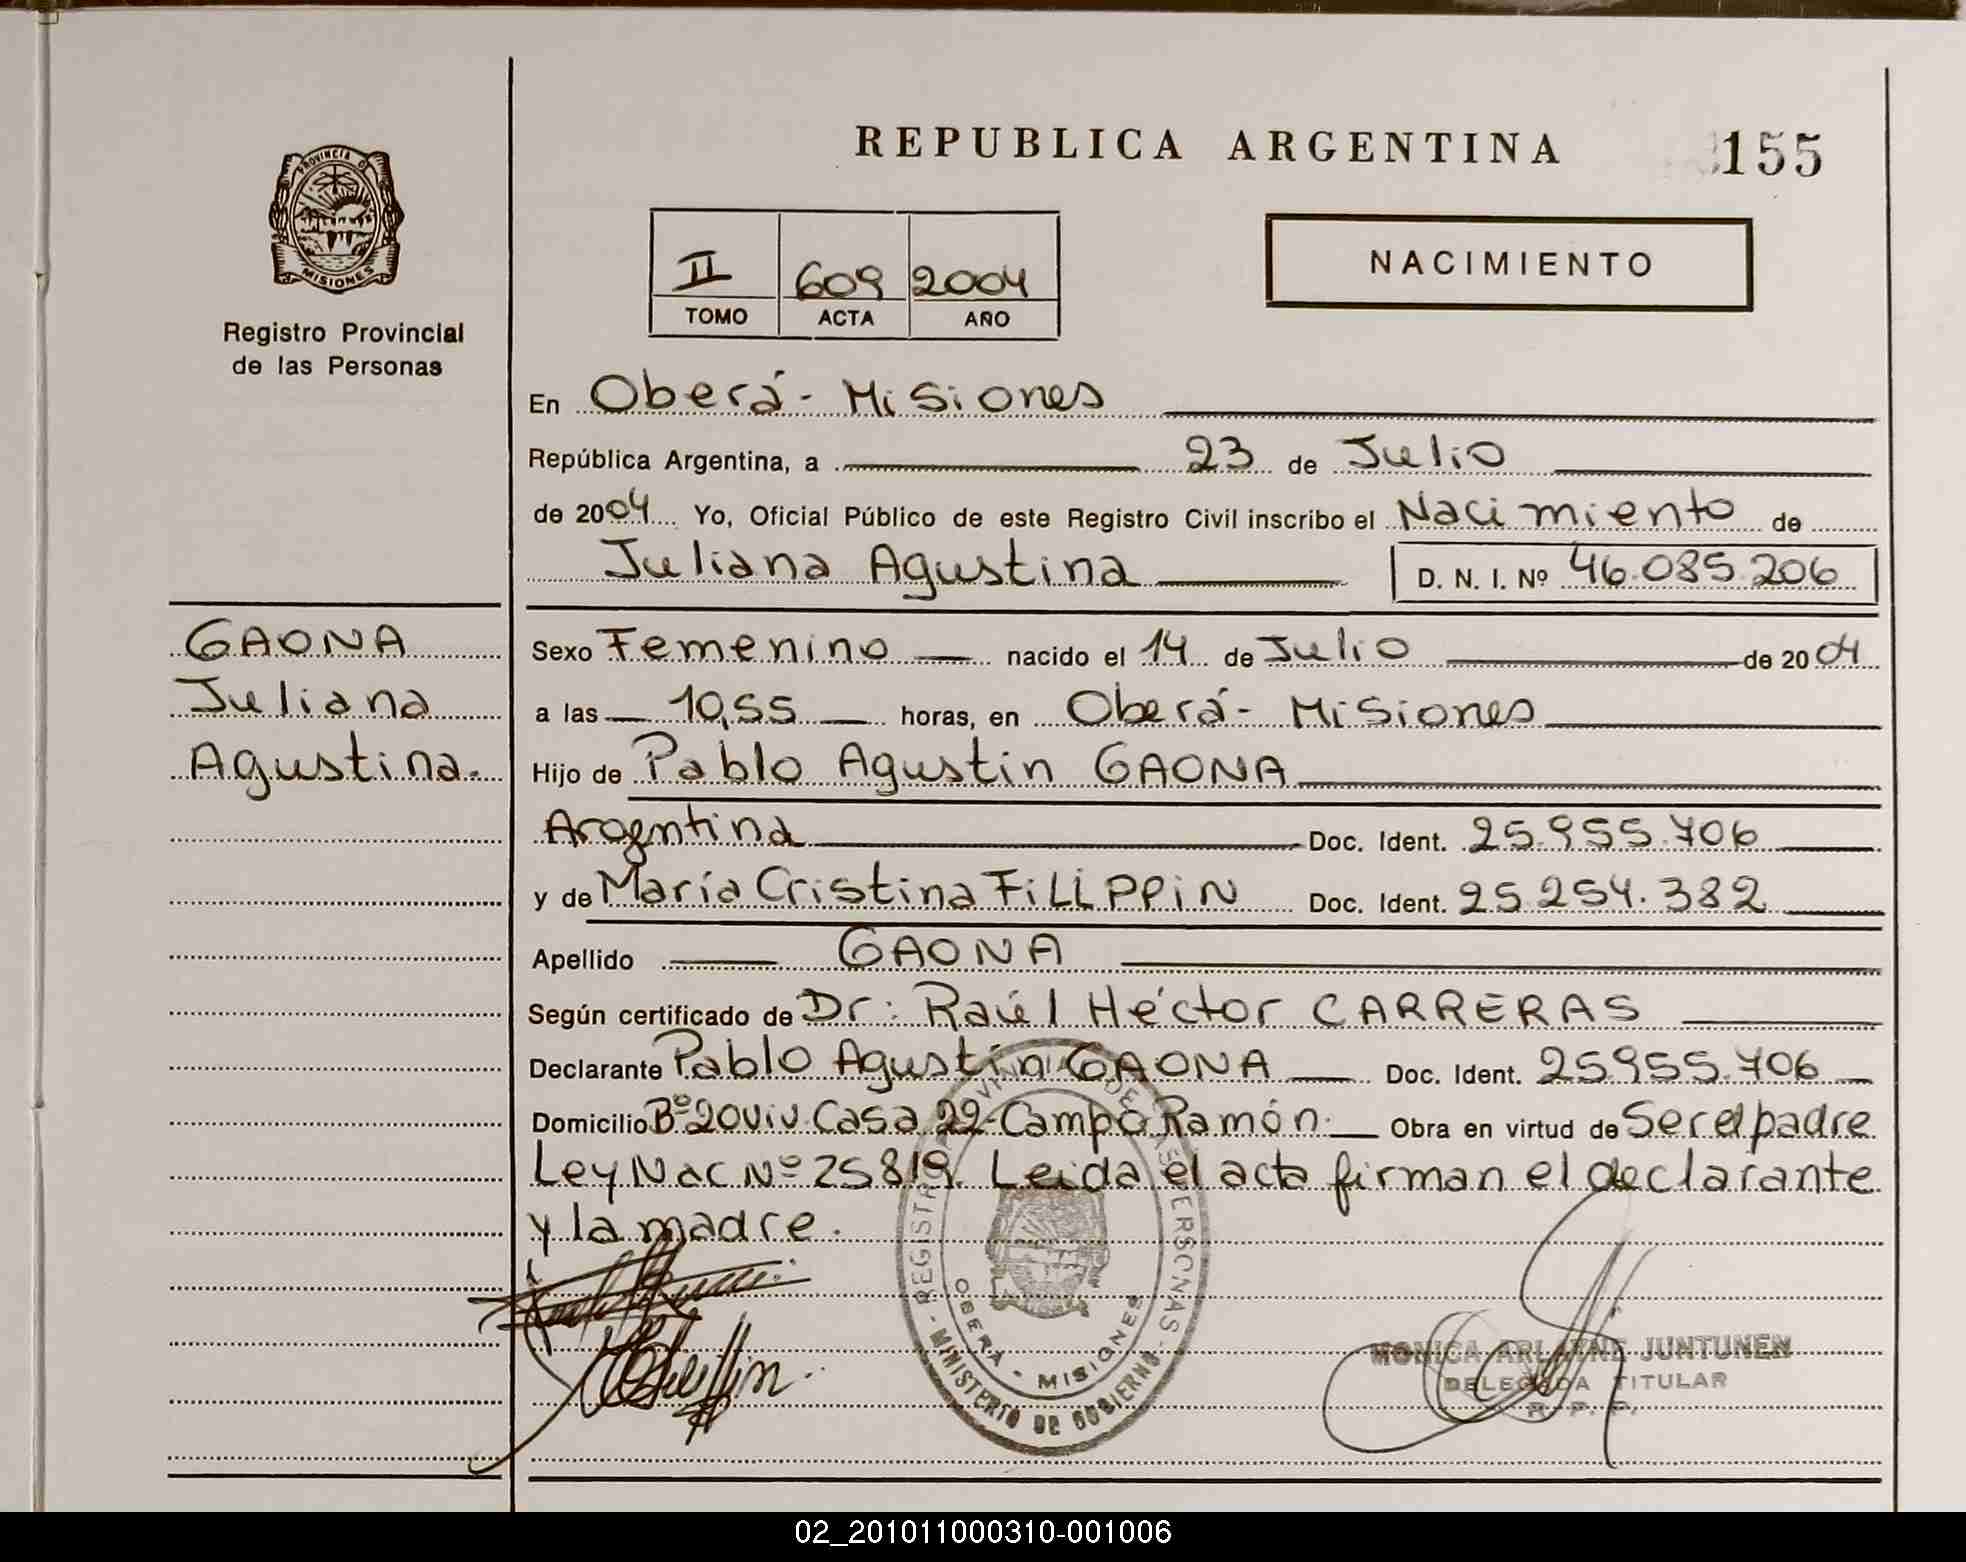 REPUBLICA ARGENTINA
155
PROVINCIA DE
MISIONES
Registro Provincial
de las Personas
II 609 2004
TOMO ACTA AÑO
NACIMIENTO
En Oberá - Misiones
República Argentina, a 23 de Julio
de 2004 Yo, Oficial Público de este Registro Civil inscribo el Nacimiento de
Juliana Agustina D. N. I. Nº 46.085.206
GAONA
Juliana
Agustina.
Sexo Femenino nacido el 14 de Julio de 2004
a las 10,55 horas, en Oberá - Misiones
Hijo de Pablo Agustin GAONA
Argentina Doc. Ident. 25.955.706
y de María Cristina FiLiPPiN Doc. Ident. 25.254.382
Apellido GAONA
Según certificado de Dr: Raúl Héctor CARRERAS
Declarante Pablo Agustín GAONA Doc. Ident. 25955.706
Domicilio Bº 20 viv. Casa 22-Campo Ramón. Obra en virtud de Ser el padre
Ley Nac Nº 25819. Leida el acta firman el declarante
y la madre.
MINISTERIO DE GOBIERNO
OBERA - MISIONES
MONICA ARLAYNE JUNTUNEN
DELEGADA TITULAR
R. P. P.
02_201011000310-001006